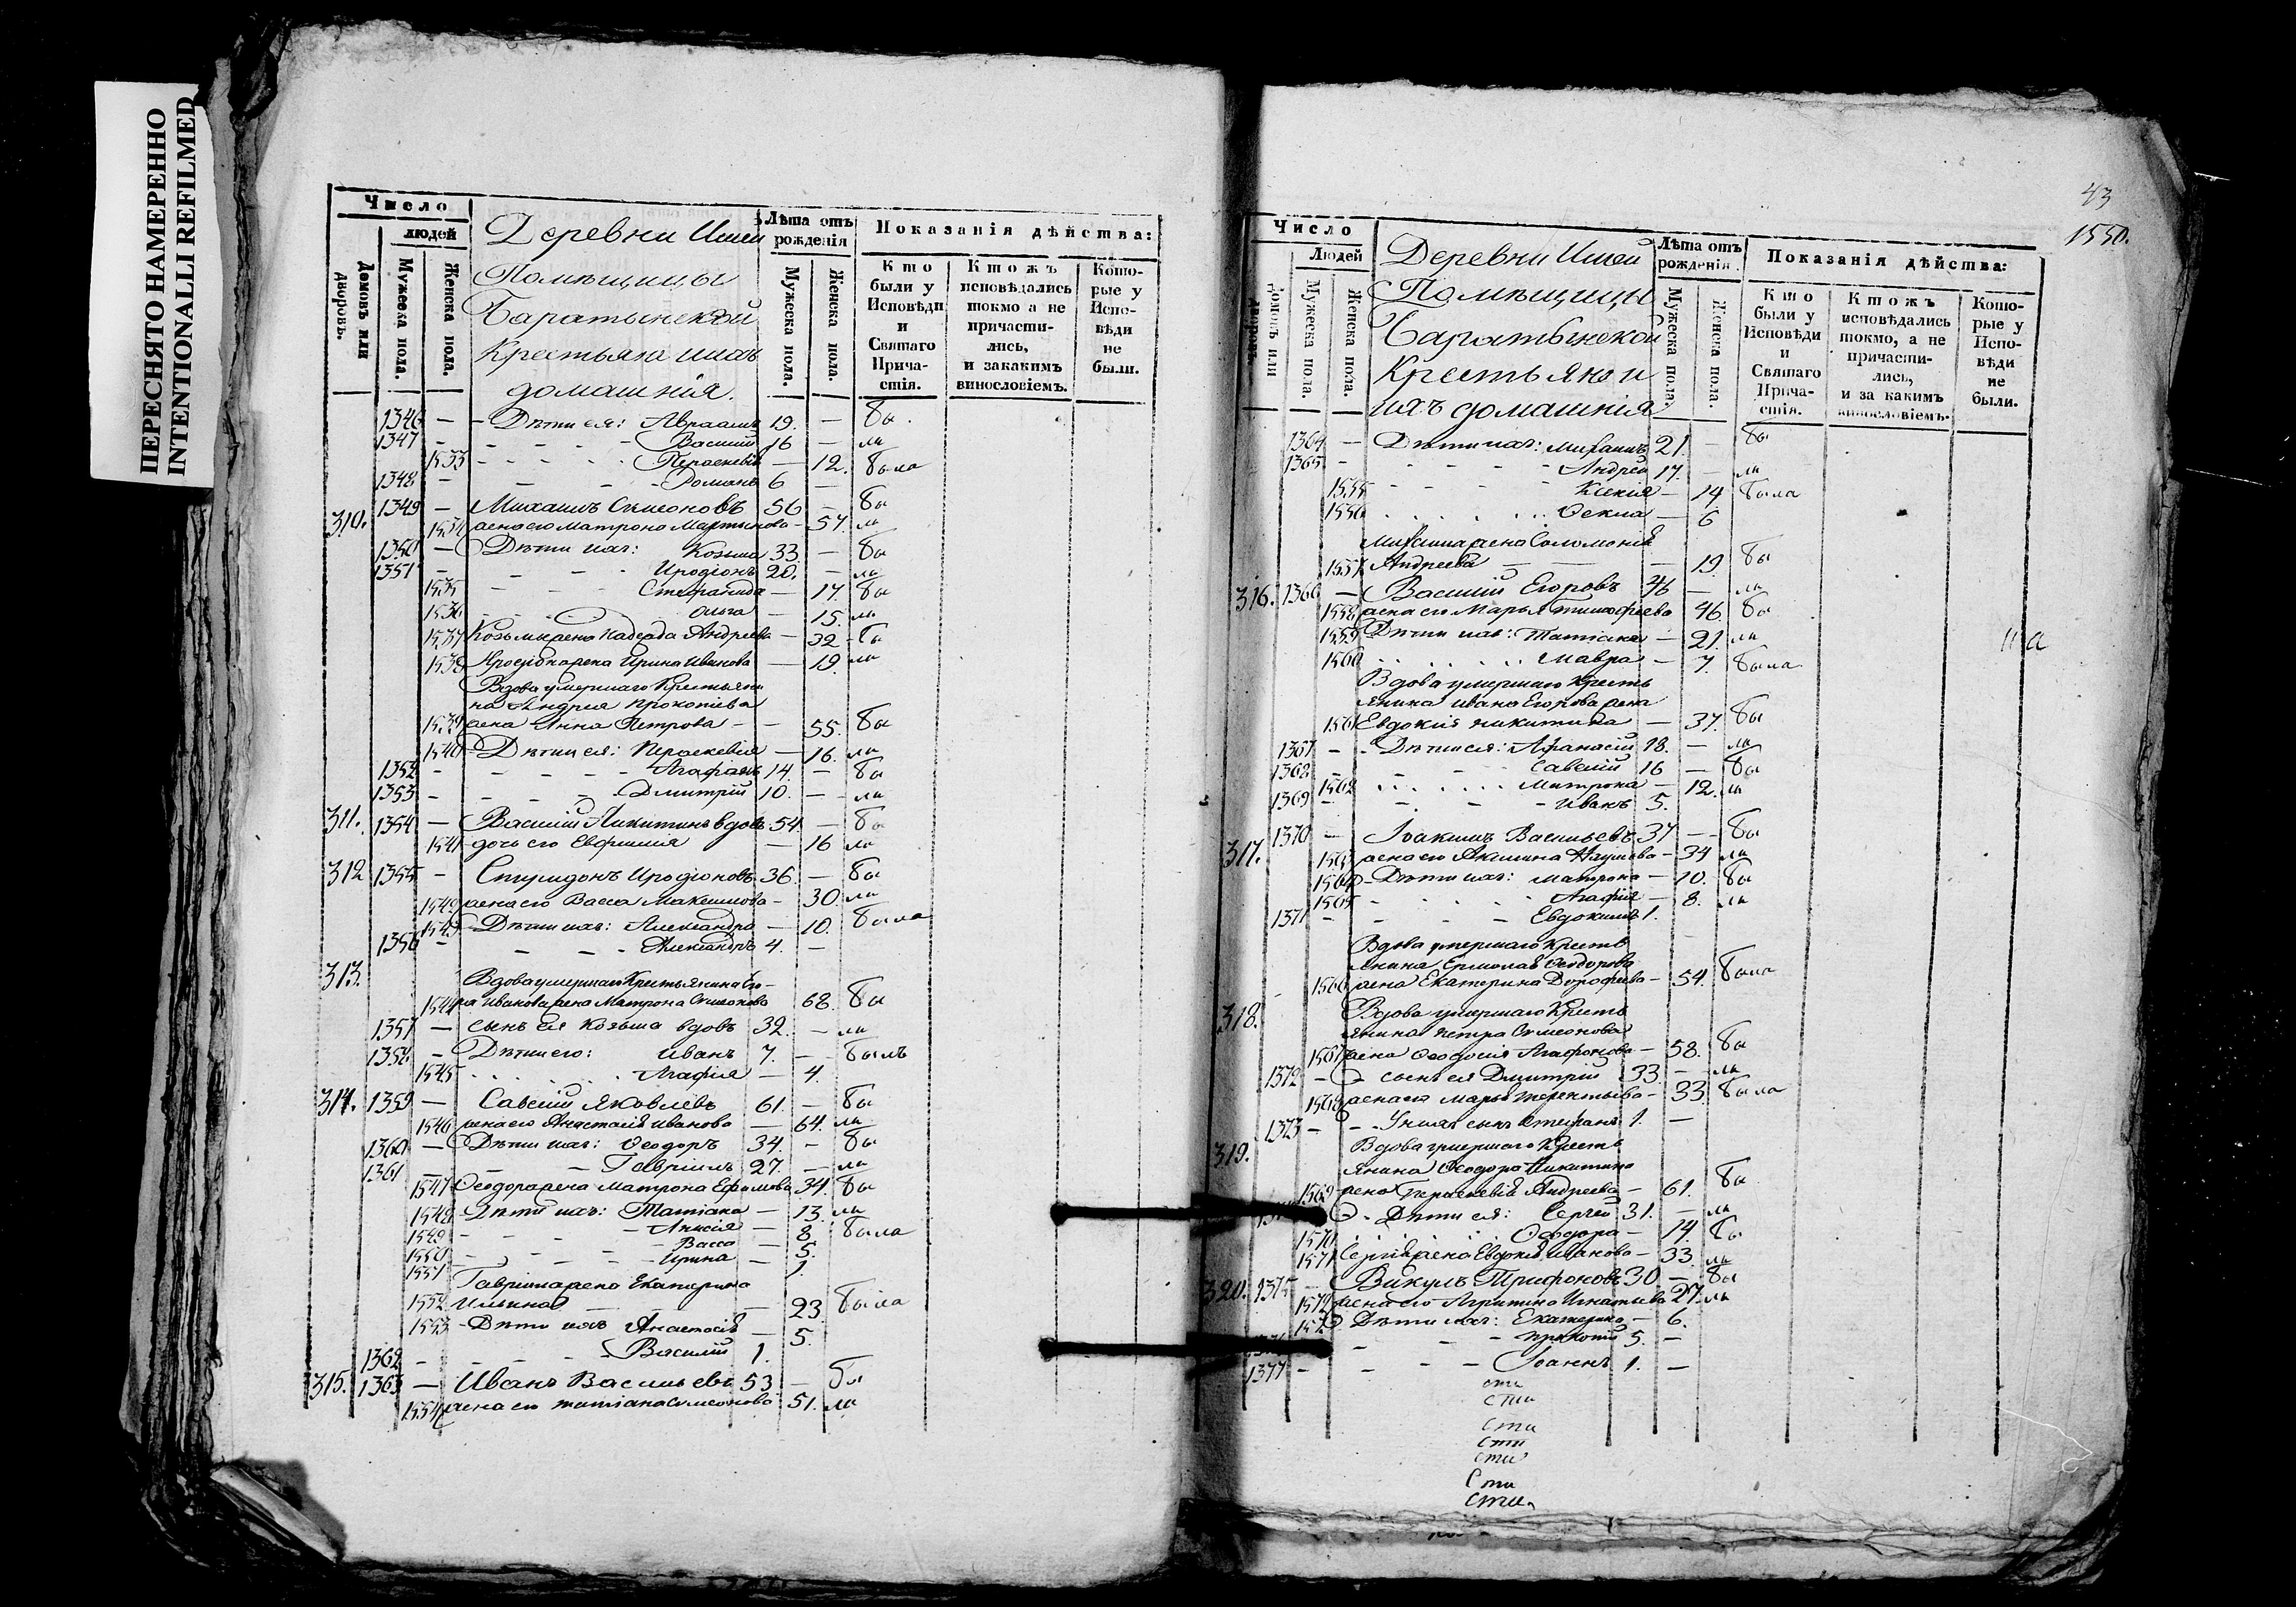 ПЕРЕСНЯТО НАМЕРЕННО
INTENTIONALLI REFILMED
Число
людей
Домовъ или дворовъ.
Мужеска пола.
Женска пола.
Деревни
Помѣщицы
Баратынской
Крестьяне ихъ
домашнія.
Лѣта отъ рожденія
Мужеска пола.
Женска пола.
Показанія дѣйства:
Кто были у Исповѣди и Святаго Причастія.
Ктожъ исповѣдались токмо а не причастились, и закакимъ винословіемъ.
Которые у Исповѣди не были.
1346 — Дѣти ея: Авраамъ 19. — бы
1347 — Василій 16 — ли
1533 Параскевія — 12. была
1348 — Романъ 6 —
310. 1349 — Михаилъ Симеоновъ 56 — бы
1534 жена его Матрона Мартынова — 57. ли
1350 — Дѣти ихъ: Козьма 33. — бы
1351 — Иродіонъ 20. — ли
1535 Стефанида — 17. бы
1536 Ольга — 15. ли
1537 Козьмы жена Надежда Андреева — 32 бы
1538 Иродіона жена Ирина Иванова — 19. ли
Вдова умершаго Крестьяни
на Андрея Прокопіева
1539 жена Анна Петрова — 55. бы
1540 Дѣти ея: Параскевія — 16. ли
1352 — Агафонъ 14. — бы
1353 — Дмитрій 10. — ли
311. 1354 — Василій Никитинъ вдовъ 54 — бы
1541 дочь его Евфимія — 16 ли
312 1355 — Спиридонъ Иродіоновъ 36. — бы
1542 жена его Васса Максимова — 30. ли
1543 Дѣти ихъ: Александра — 10. была
1356 — Александръ 4. —
313. Вдова умершаго Крестьянина
1544 Иванова жена Матрона Симеонова 68. бы
1357 — сынъ ея Козьма вдовъ 32. — ли
1358 — Дѣти его: Иванъ 7. — былъ
1545 Агафія — 4.
314. 1359 — Савелій Яковлевъ 61. — бы
1546 жена его Анастасія Иванова — 64. ли
1360 — Дѣти ихъ: Ѳеодоръ 34. — бы
1361 — Гавріилъ 27. — ли
1547 Ѳеодора жена Матрона Ефимова 34. бы
1548 Дѣти ихъ: Татіана — 13. ли
1549 Анисія — 8. была
1550 Васса — 5.
1551 Ирина — 1.
Гавріила жена Екатерина
1552 Ильина — 23. была
1553 Дѣти ихъ Анастасія — 5.
1362 — Василій 1.
315. 1363 — Иванъ Васильевъ 53 — бы
1554 жена его Татіана Симеонова 51. ли
43
1550.
Число
Людей
Домовъ или дворовъ.
Мужеска пола.
Женска пола.
Деревни
Помѣщицы
Баратынской
Крестьяне и
ихъ домашнія
Лѣта отъ рожденія.
Мужеска пола.
Женска пола.
Показанія дѣйства:
Кто были у Исповѣди и Святаго Причастія.
Ктожъ исповѣдались токмо, а не причастились, и за какимъ винословіемъ.
Которые у Исповѣди не были.
1364 — Дѣти ихъ: Михаилъ 21. — бы
1365 — Андрей 17. — ли
1555 Ксенія — 14 была
1556 Ѳекла — 6
Михаила жена Соломонія
1557 Андреева — 19. бы
316. 1366 — Василій Егоровъ 46 — ли
1558 жена его Марья Тимофеева 46. бы
1559 Дѣти ихъ: Татіана — 21. ли
1560 Мавра — 7. была
Вдова умершаго Кресть
янина Ивана Егорова жена
1561 Евдокія Никитина — 37. бы
1367 — Дѣти ея: Афанасій 18. — ли
1368 — Савелій 16 — бы
1562 Матрона — 12. ли
1369 — Иванъ 5.
317. 1370 — Іоакимъ Васильевъ 37 — бы
1563 жена его Акилина Наумова — 34 ли
1564 Дѣти ихъ: Матрона — 10. бы
1565 Агафія — 8. ли
1371 — Евдокимъ 1.
Вдова умершаго Кресть
янина Ермолая Ѳеодорова
1566 жена Екатерина Дорофеева — 54. была
318. Вдова умершаго Кресть
янина Петра Симеонова
1567 жена Ѳеодосія Агафонова — 58. бы
1372 — сынъ ея Дмитрій 33. — ли
1568 жена его Марья Терентьева — 33 была
1373 — У нихъ сынъ Стефанъ 1. —
319. Вдова умершаго Кресть
янина Ѳеодора Никитина
1569 жена Параскевія Андреева — 61. бы
Дѣти ея: Сергей 31. — ли
1570. Ѳеодора — 14. бы
1571 Сергія жена Евдокія Иванова — 33. ли
320. 1375 — Викулъ Трифоновъ 30 — бы
1572 жена его Агриппина Игнатьева 27. ли
1573 Дѣти ихъ: Екатерина — 6.
Прокопій 5. —
1377 — Іоаннъ 1. —
сти
сти
сти
сти
сти
сти
сти.